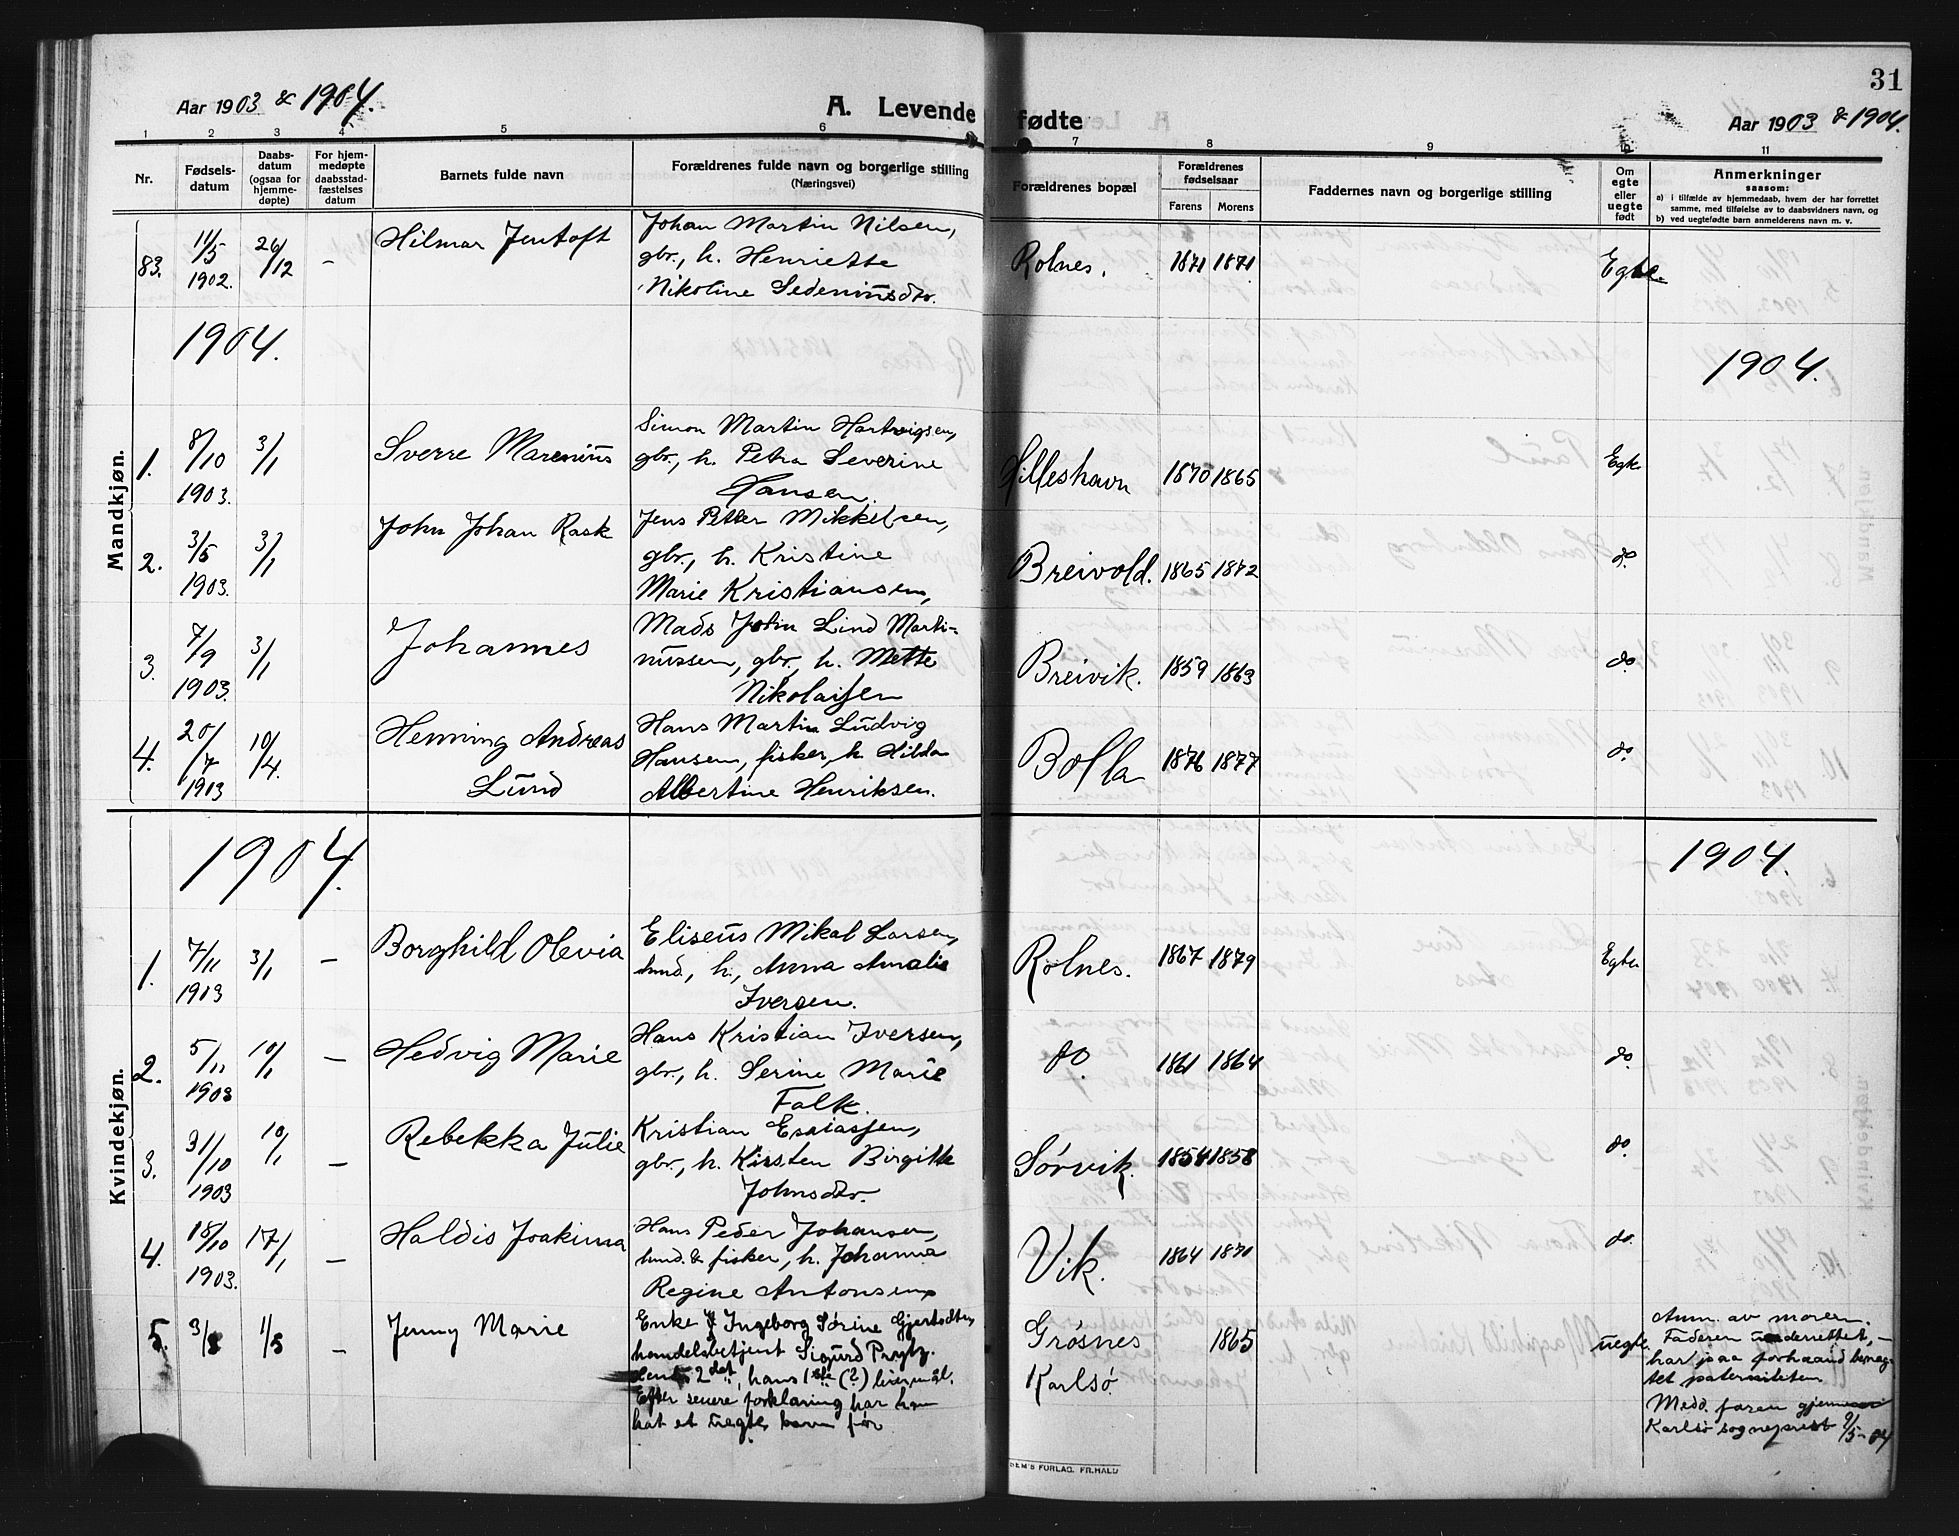 31
Aar 1903 & 1904.
A. Levende fødte
Aar 1903 & 1904.
1 2 3 4 5 6 7 8 9 10 11
Nr.
Fødsels-
datum
Daabs-
datum
(ogsaa for
hjemme-
døpte)
For hjem-
medøpte
daabsstad-
fæstelses
datum
Barnets fulde navn
Forældrenes fulde navn og borgerlige stilling
(Næringsvei)
Forældrenes bopæl
Forældrenes
fødselsaar
Farens
Morens
Faddernes navn og borgerlige stilling
Om
egte
eller
uegte
født
Anmerkninger
saasom:
a) i tilfælde av hjemmedaab, hvem der har forrettet
samme, med tilføielse av to daabsvidners navn, og
b) ved uegtefødte barn anmelderens navn m. v.
83. 11/5 1902. 26/12 – Hilmar Jentoft
Johan Martin Nilsen,
gbr., h. Henriette
Nikoline Sedeniusdtr.
Rolnes. 1871 1871. Egte.
1904.
1904.
Mandkjøn.
1. 8/10 1903. 3/1 Sverre Marenius
Simon Martin Hartvigsen,
gbr., h. Petra Severine
Hansen.
Hilleshavn 1870 1865 Egte
2. 3/5 1903. 3/1 John Johan Rask
Jens Petter Mikkelsen,
gbr., h. Kristine
Marie Kristiansen,
Breivold. 1865 1872 do.
3. 7/9 1903. 3/1 Johannes
Mads John Lind Marti-
nussen, gbr., h. Mette
Nikolaisen
Breivik. 1859 1863 do.
4. 20/7 1903 10/4. Henning Andreas
Lund
Hans Martin Ludvig
Hansen, fisker, h. Hilda
Albertine Henriksen.
Bolla 1876 1877 do.
1904.
1904.
Kvindekjøn.
1. 7/11 1903 3/1 – Borghild Olevia
Eliseus Mikal Larsen,
h., Anna Amalie
Iversen.
Rolnes. 1867 1879 Egte.
2. 5/11 1903 10/1 – Hedvig Marie
Hans Kristian Iversen,
gbr., h. Serine Marie
Falk.
do. 1861 1864 do.
3. 31/10 1903 10/1 – Rebekka Julie
Kristian Esaiassen,
gbr., h. Kirsten Birgitte
Johnsdtr.
Sørvik. 1854 1858 do.
4. 18/10 1903. 17/1 – Haldis Joakima
Hans Peder Johansen,
& fisker, h. Johanna
Regine Antonsen
Vik. 1864 1870 do.
5. 1/3 – Jenny Marie
Enke Ingeborg Sørine
handelsbetjent Sigurd Prytz.
2det, hans 1ste (?) leiermål.
Efter senere forklaring har hun
hat et uegte barn før
Grøsnes
Karlsø.
1865
uegte.
Anm. av moren.
Faderen underrettet,
har paa forhaand benæg-
tet paterniteten
Medd. faren gjennem
Karlsø sogneprest 9/5-04
SEM'S FORLAG. FR.HALD